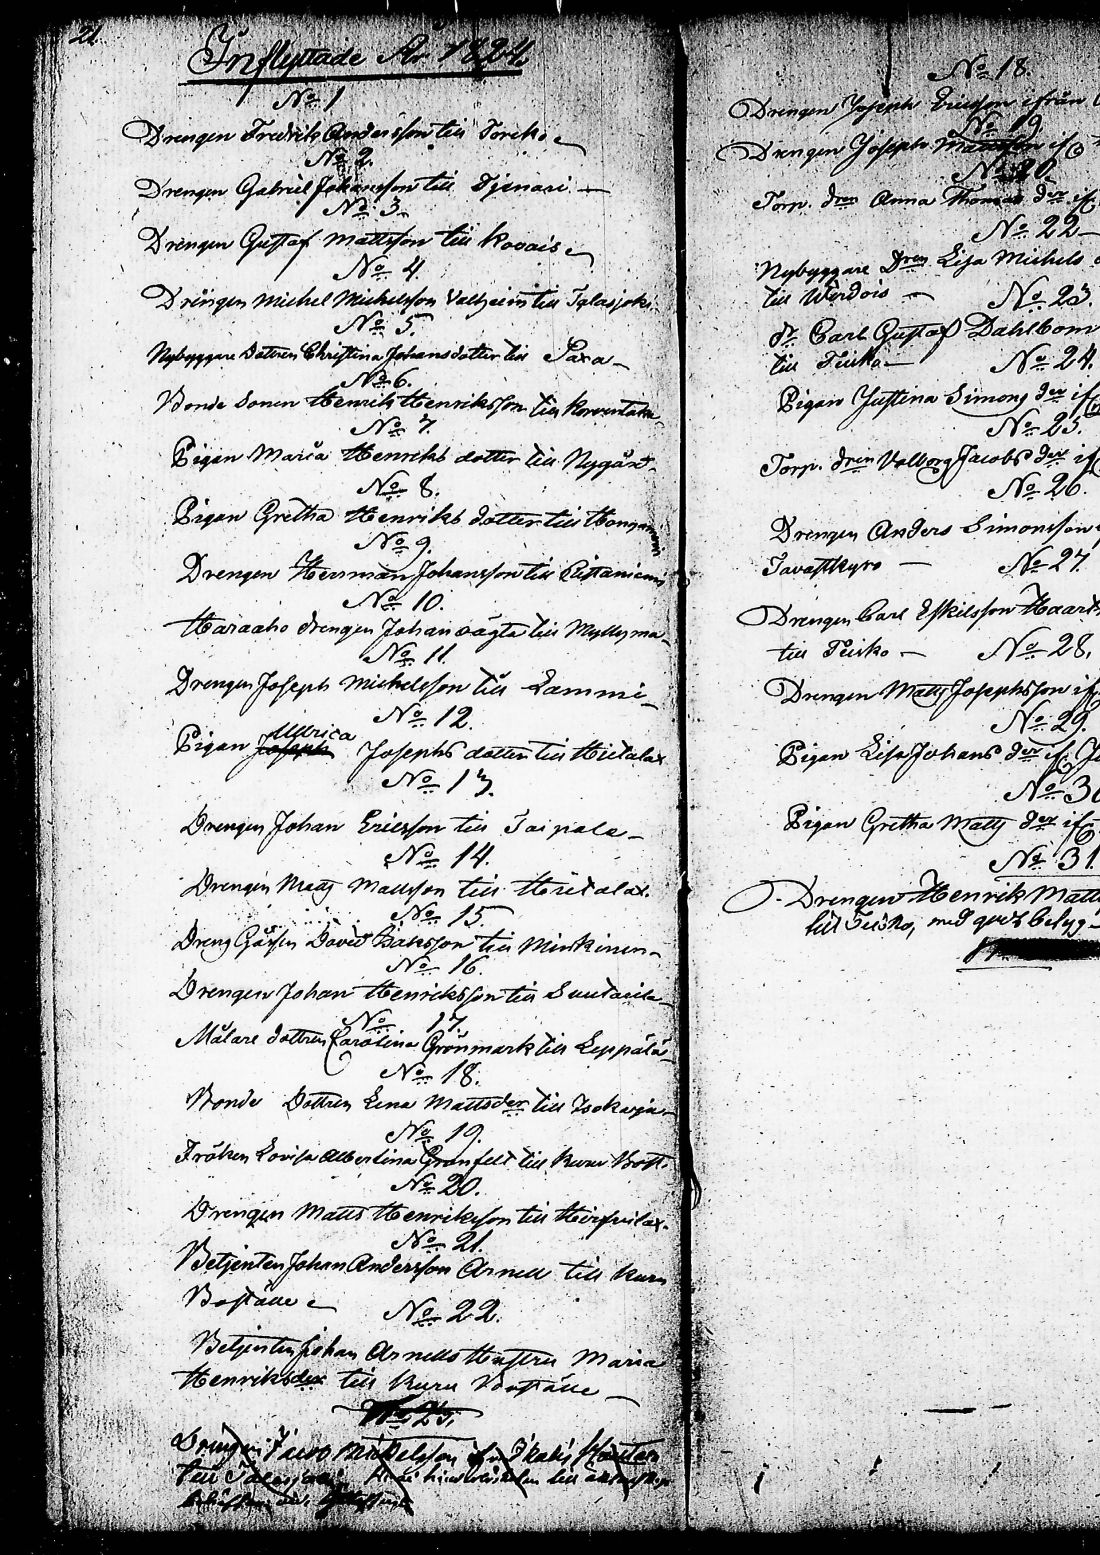 22
Inflyttade År 1824.
No 1
Drengen Fredrik Andersson till Toreko
No 2.
Drengen Gabriel Johansson till Tjenari
No 3.
Drengen Gustaf Mattsson till Kovais
No 4.
Drengen Michel Michelsson Valheim till Talasjoki
No 5.
Nybyggare Dottren Christina Johansdotter till Para
No 6.
Bonde Sonen Henrik Henriksson till
No 7.
Pigan Maria Henriks dotter till Nygård
No 8.
Pigan Gretha Henriks dotter till
No 9.
Drengen Herman Johansson till
No 10.
Haraaho drengen Johan till Myllyma
No 11.
Drengen Joseph Michelsson till Lammi
No 12.
Ulrica
Pigan Joseph Josephs dotter till Hietalax
No 13.
Drengen Johan Ericsson till Taipale
No 14.
Drengen Matts Mattsson till Hietalax.
No 15
Dreng Gåssen David till Minkinen
No 16.
Drengen Johan Henriksson till
No 17.
Målare dottren Carolina Grönmark till Leppälä
No 18.
Bonde Dottren Lena Mattsder till Isokarja
No 19.
Fröken Lovisa Albertina Granfelt till Kuru Bost.
No 20.
Drengen Matts Henriksson till
No 21.
Betjenten Johan Andersson Arnell till Kuru
Boställe
No 22.
Betjenten Johan Arnells Hustru Maria
Henriksder till Kuru Boställe
No 23.
Drengen Michelsson
till
No 18.
Drengen Joseph Ericsson ifrån
No 19.
Drengen Joseph Mattsson if
No 20.
Torp. dren Anna Thomas der if
No 22
Nybyggare Dren Lisa Michels
till Werdois
No 23.
dr. Carl Gustaf Dahlbom
till Teisko
No 24.
Pigan Justina Simons der if
No 25.
Torp. dren Valborg Jacobs der if
No 26.
Drengen Anders Simonsson
Tavastkyro
No 27.
Drengen Carl Eskilsson
till Teisko
No 28.
Drengen Matts Josephsson if
No 29.
Pigan Lisa Johans der if.
No 30
Pigan Gretha Matts der if
No 31.
Drengen Henrik Matts
till Teisko, med godt betyg